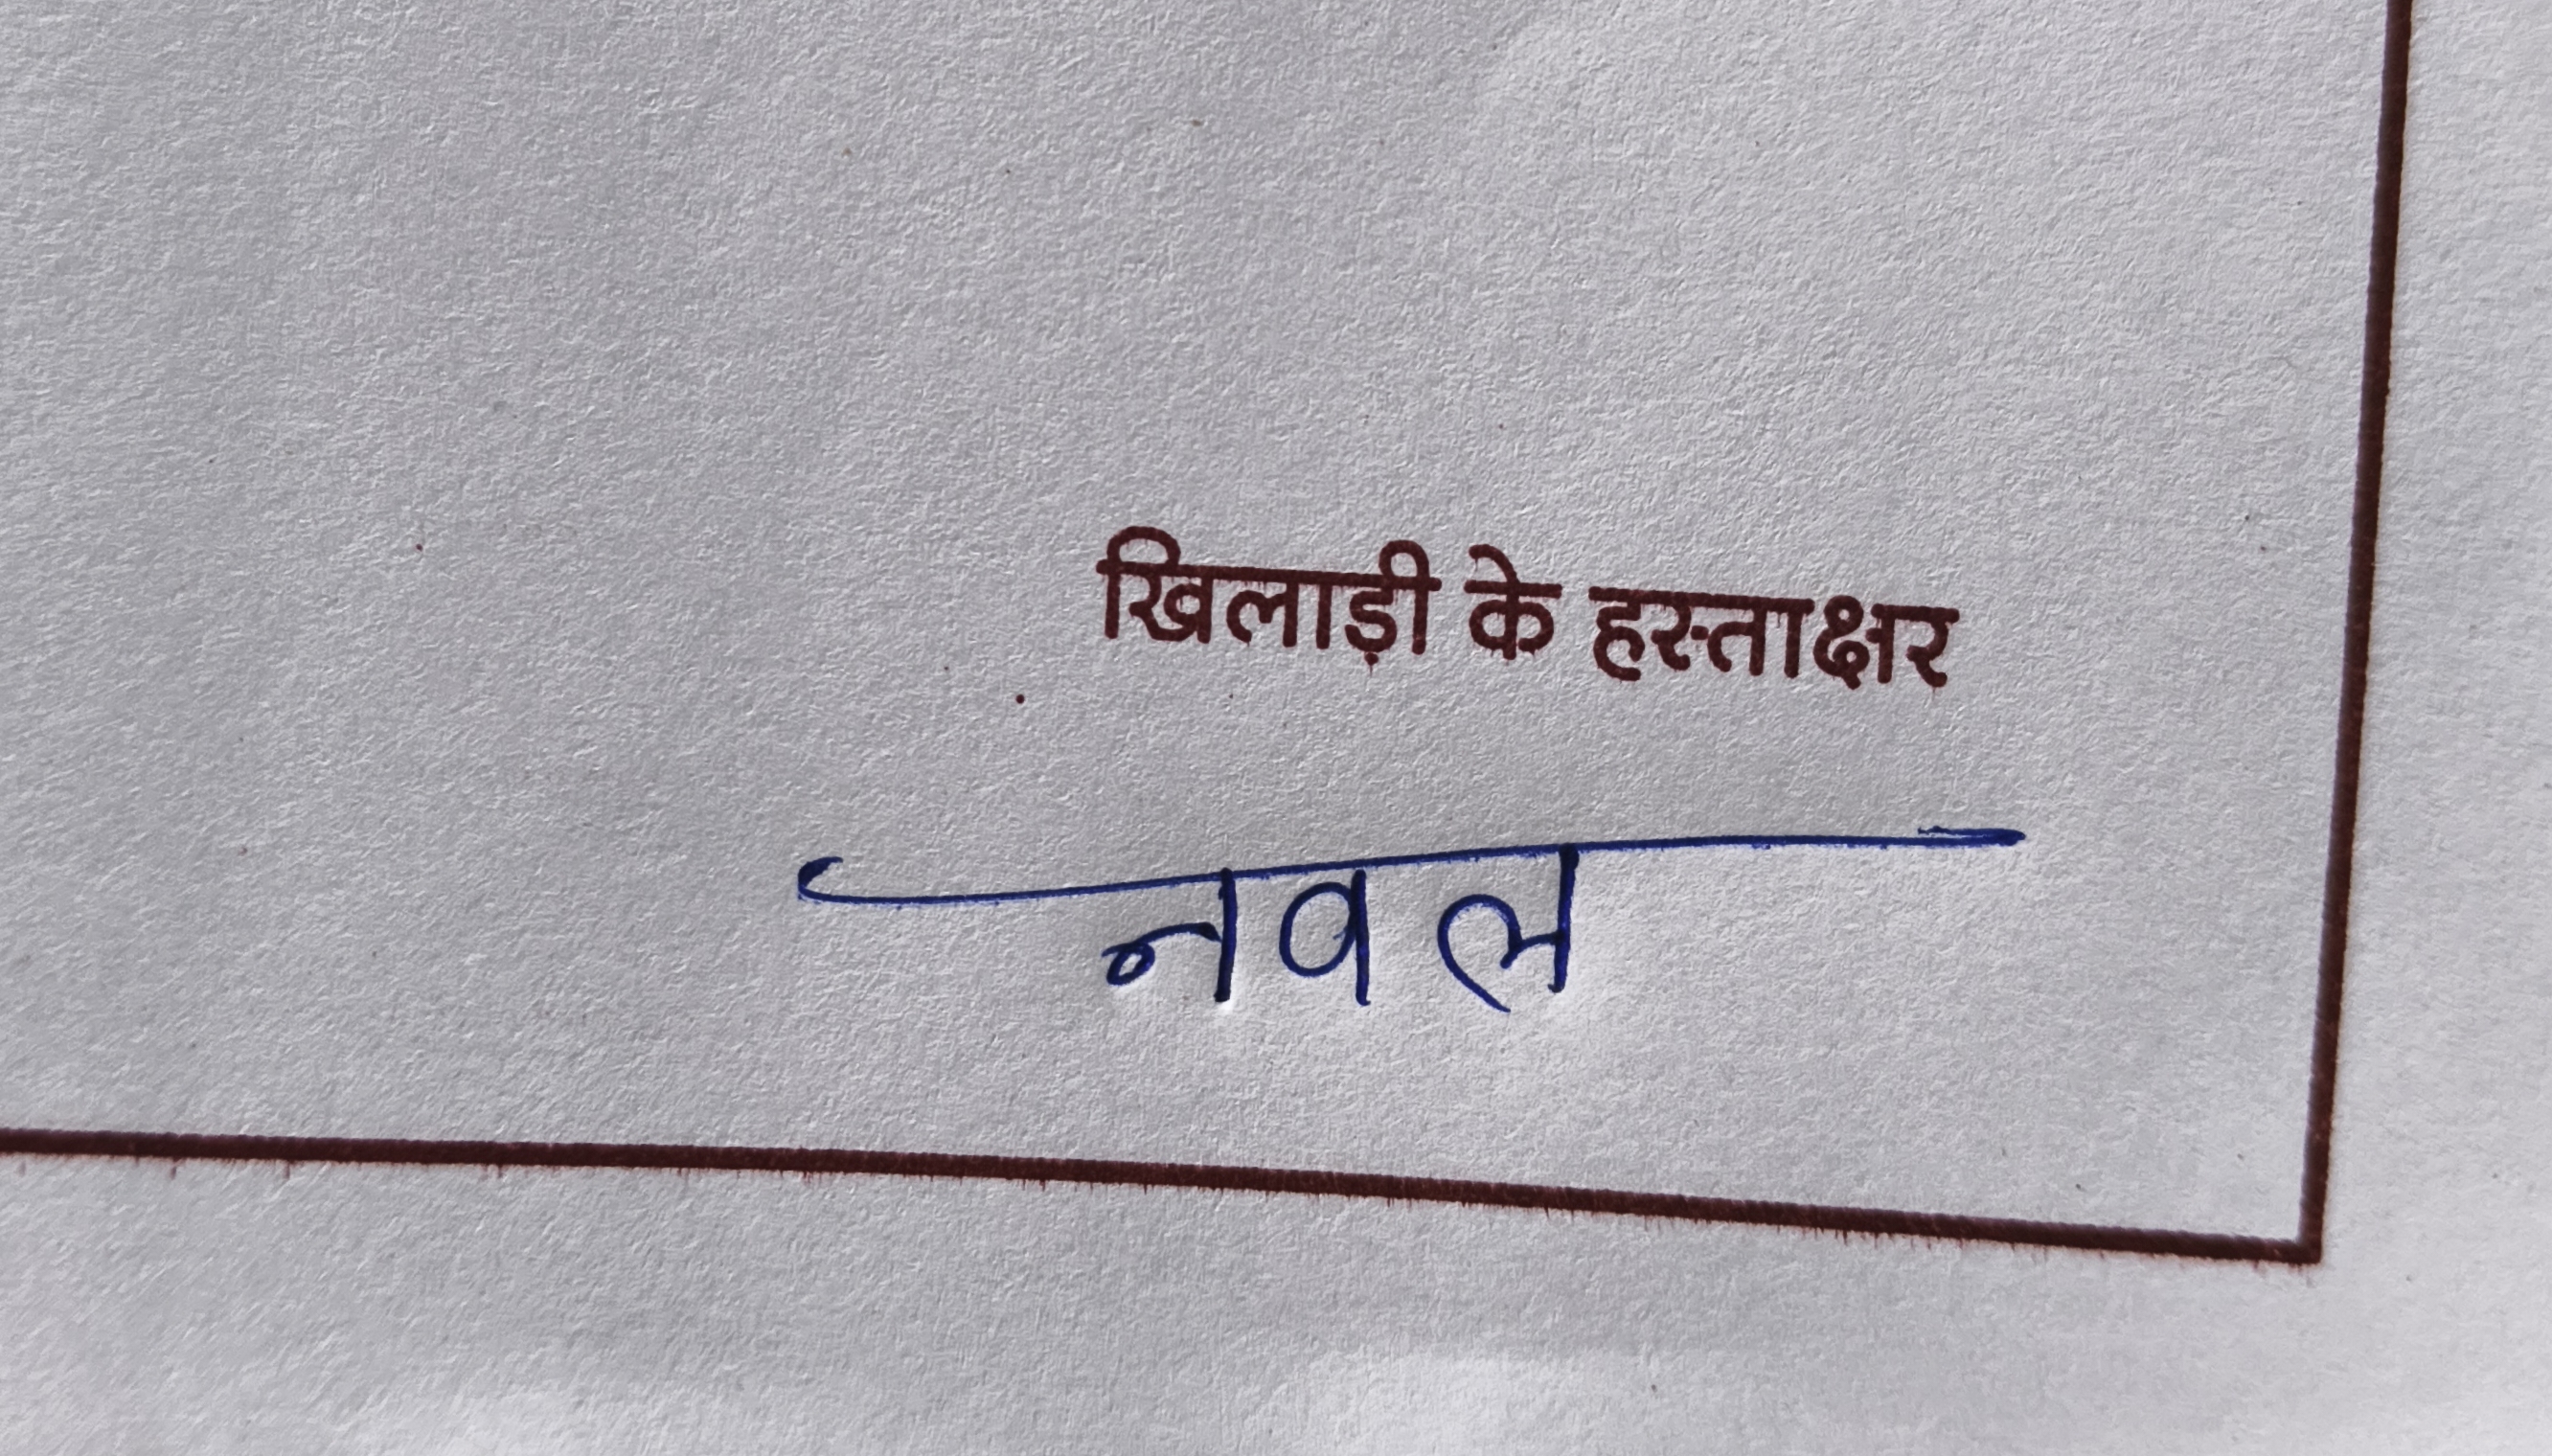 खिलाड़ी के हस्ताक्षर
नवल